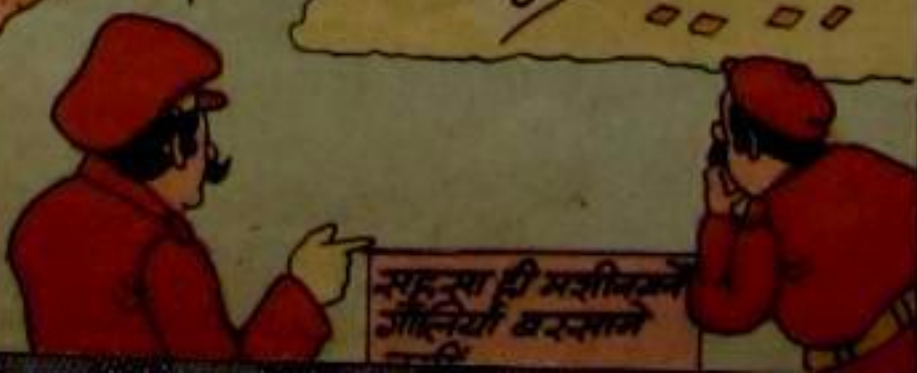 सहसा ही मशीनगनें
गोलियाँ बरसाने
लगीं